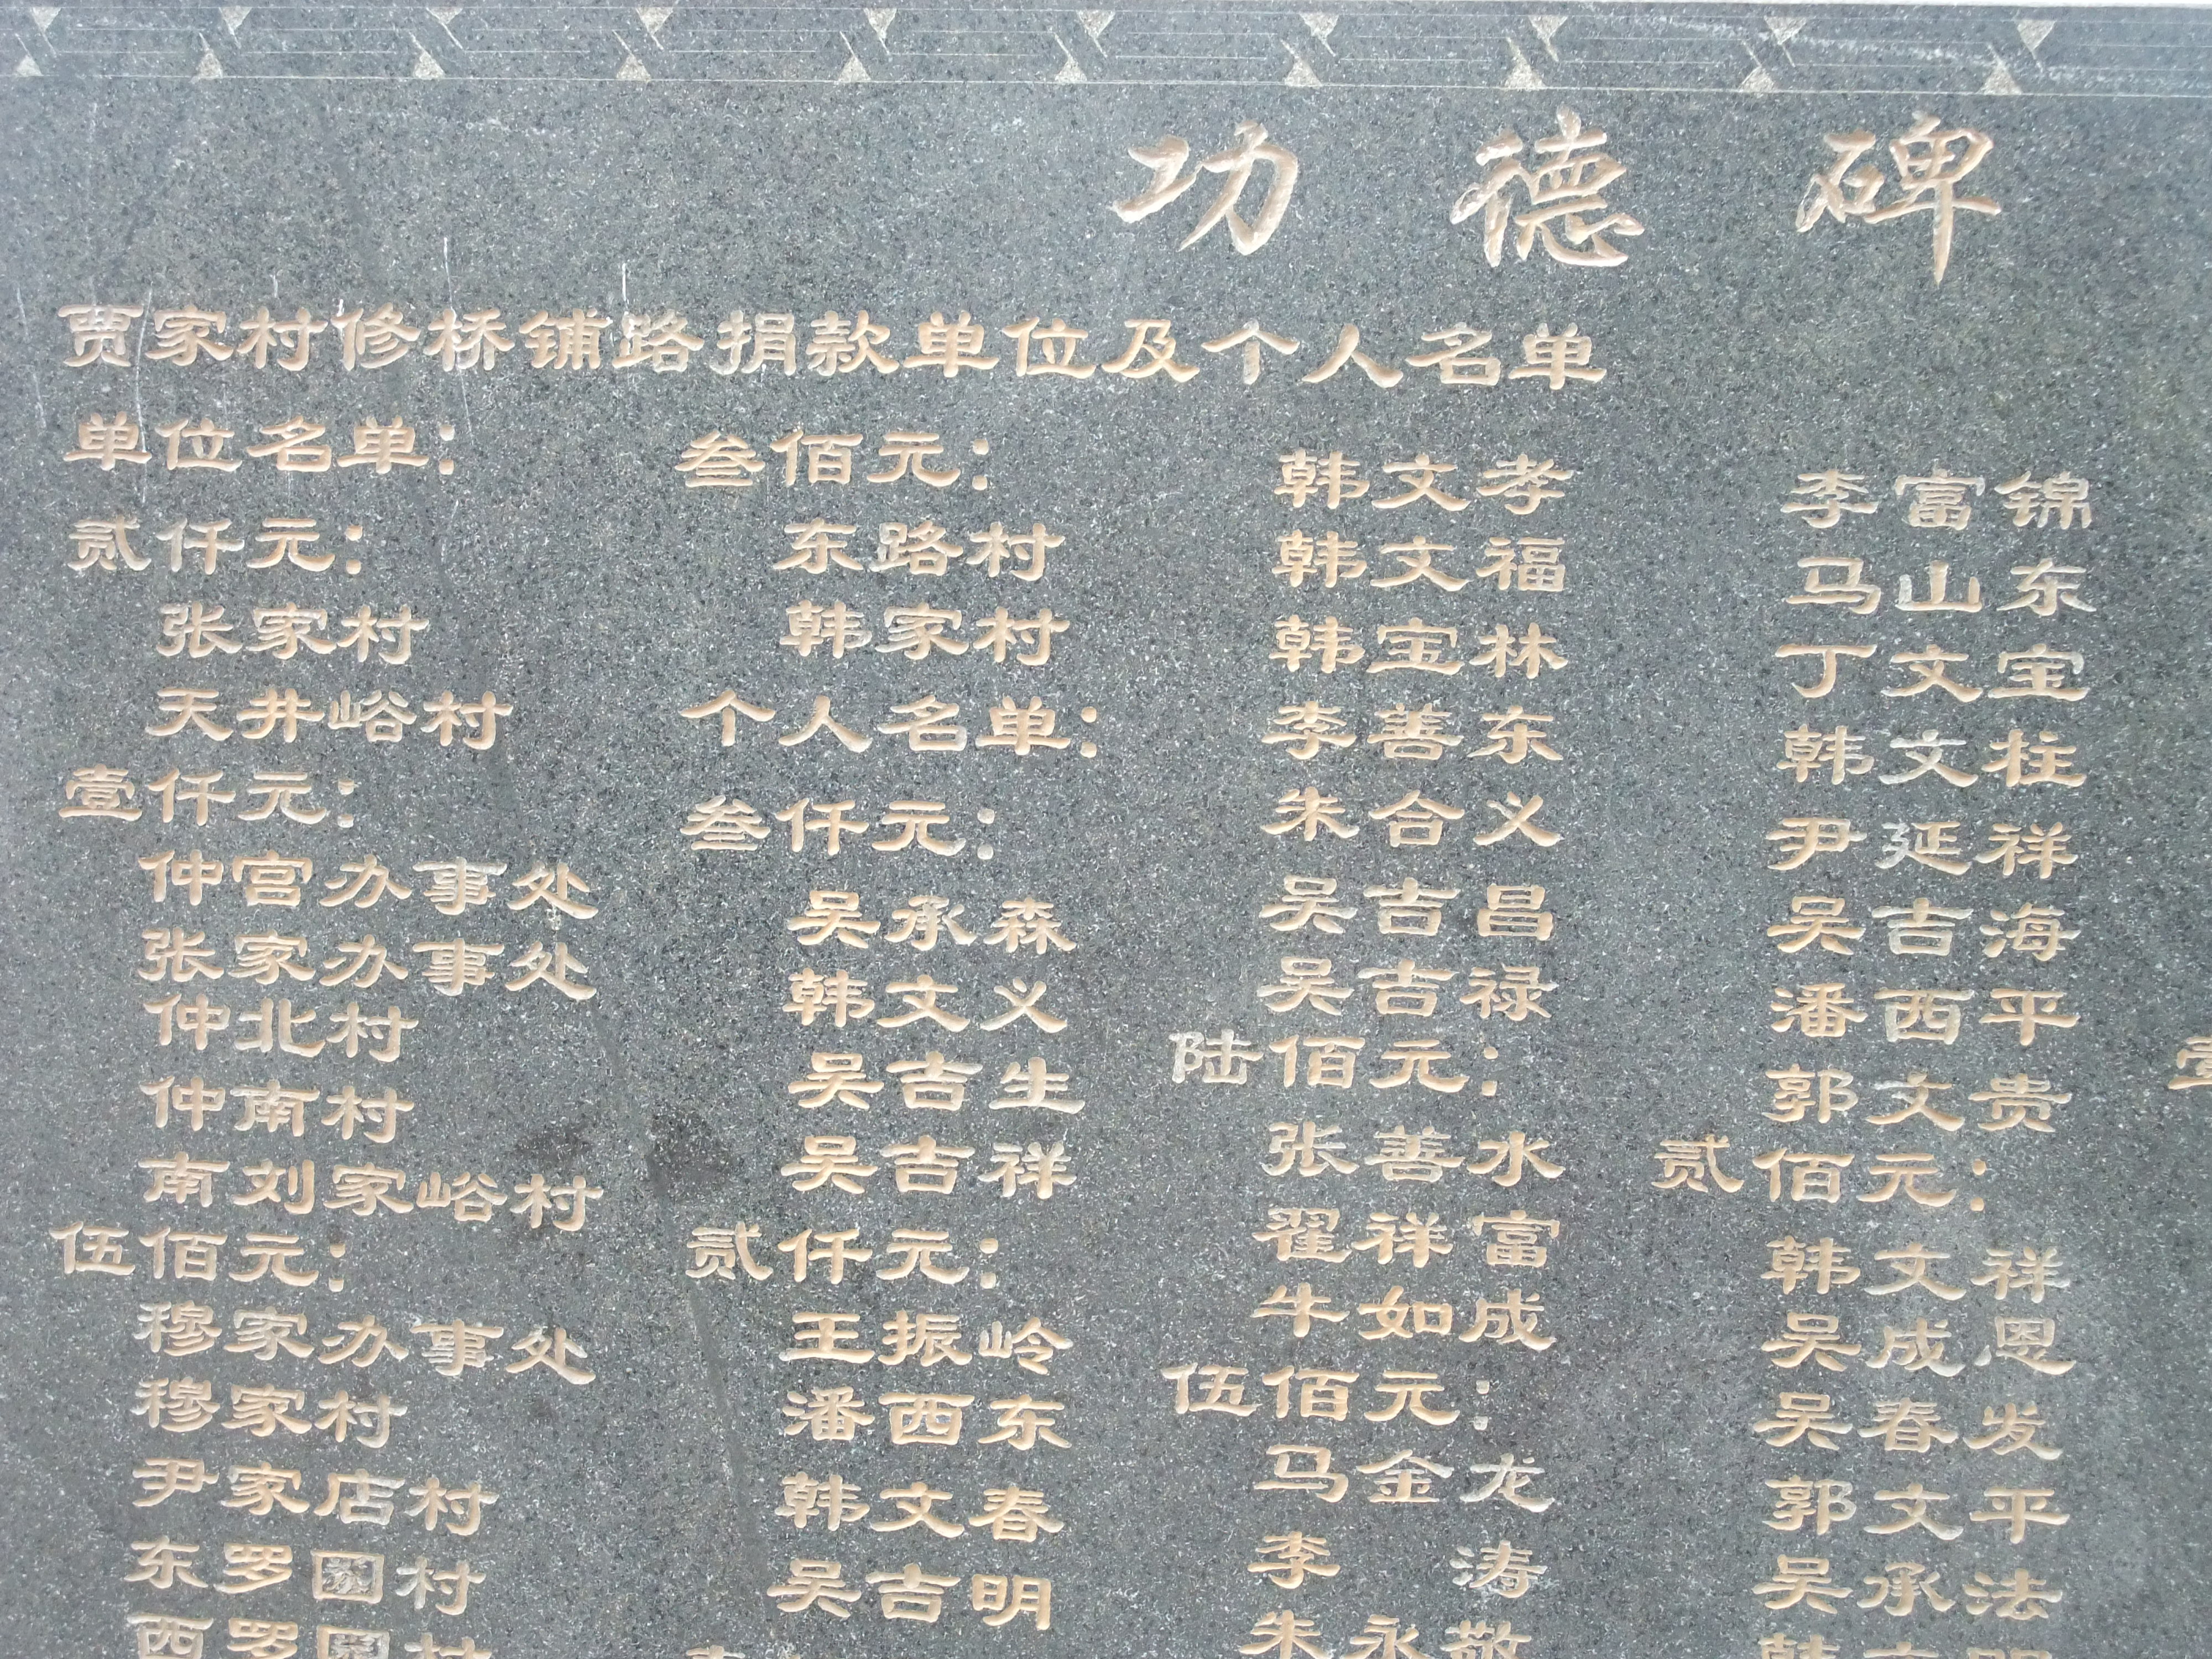 功德碑
贾家村修桥铺路捐款单位及个人名单
单位名单：
贰仟元：
张家村
天井峪村
壹仟元：
仲宫办事处
张家办事处
仲北村
仲南村
南刘家峪村
伍佰元：
穆家办事处
穆家村
尹家店村
东罗圈村
西罗圈村
叁佰元：
东路村
韩家村
个人名单：
叁仟元：
吴承森
韩文义
吴吉生
吴吉祥
贰仟元：
王振岭
潘西东
韩文春
吴吉明
韩文孝
韩文福
韩宝林
李善东
朱合义
吴吉昌
吴吉禄
陆佰元：
张善水
翟祥富
牛如成
伍佰元：
马金龙
李涛
朱永敬
李富锦
马山东
丁文宝
韩文柱
尹延祥
吴吉海
潘西平
郭文贵
贰佰元：
韩文祥
吴成恩
吴春发
郭文平
吴承法